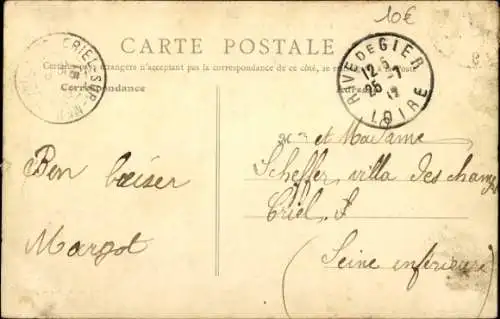 10€
CARTE POSTALE
Certains pays étrangers n'acceptant pas la correspondance de ce côté, se renseigner à la Poste
Correspondance
CRIEL-SUR-MER
RIVE DE GIER
12 - 5
25 - 7
LOIRE
Mr et Madame
Scheffer, villa des champs
Criel. S
(Seine inférieure)
Bon baiser
Margot